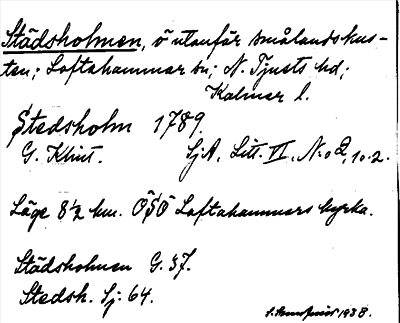 Städsholmen, ö utanför smålandskus-
ten; Loftahammar sn; N. Tjusts hd;
Kalmar l.
Stedsholm 1789.
G. Klint. SjA, Litt. VI, No 2, 10.2.
Läge 8½ km. OSO Loftahammars kyrka.
Städsholmen G. 37.
Stedsh. Sj. 64.
1938.